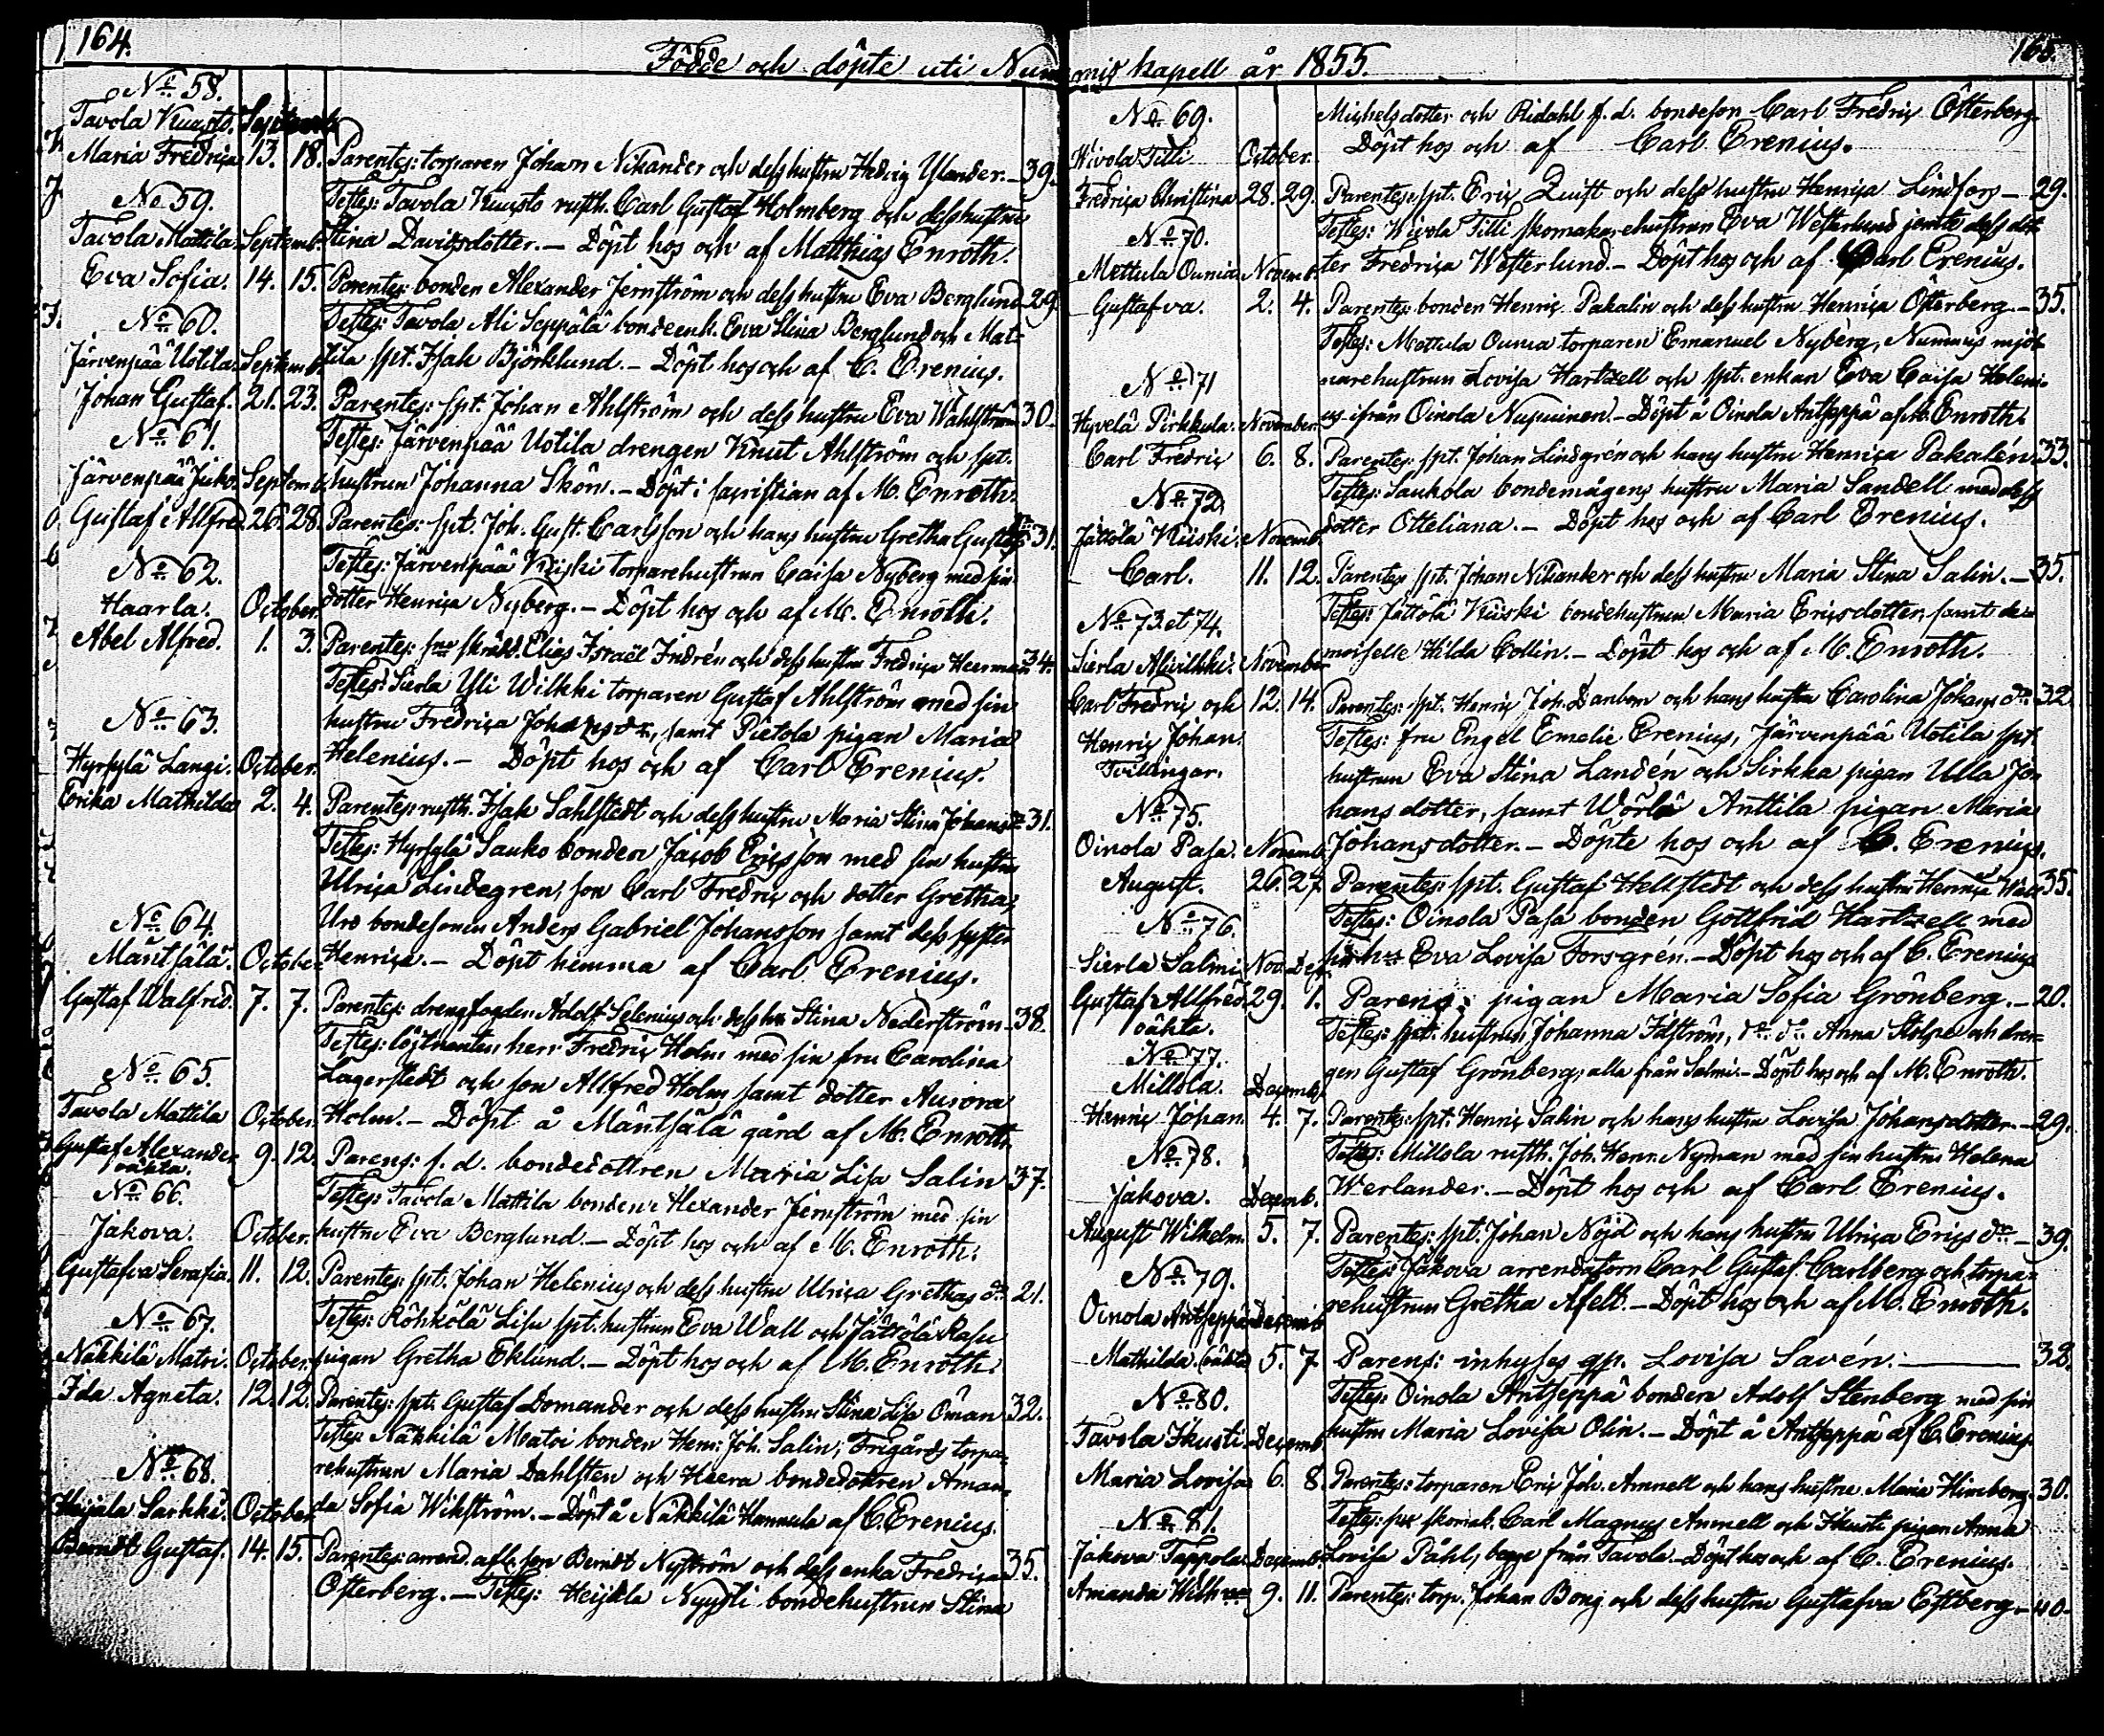 164.
Födde och döpte uti Num
No 58.
Tavola Kuusto. Septemb.
Maria Fredrica 13. 18. Parentes: torparen Johan Nikander och dess hustru Hedvig Ylander. — 39.
No 59. Testes: Tavola Kuusto rusth. Carl Gustaf Holmberg och dess hustru
Tavola Mattila. Septemb. Stina Davidsdotter. — Döpt hos och af Matthias Enroth.
Eva Sofia. 14. 15. Parentes: bonden Alexander Jernström och dess hustru Eva Berglund 29.
No 60. Testes: Tavola Ali Seppälä bondeenk. Eva Stina Berglund och Mat-
Järvenpää Uotila. Septemb. tila spt. Isak Björklund. — Döpt hos och af C. Erenius.
Johan Gustaf. 21. 23. Parentes: spt. Johan Ahlström och dess hustru Eva Wahlström 30.
No 61. Testes: Järvenpää Uotila drengen Knut Ahlström och spt.
Järvenpää Juko. Septemb. hustrun Johanna Skön. — Döpt i sacristian af M. Enroth.
Gustaf Alfred 26. 28. Parentes: spt. Joh. Gust. Carlsson och hans hustru Gretha Gustafs dr 31.
No 62. Testes: Järvenpää Kriski torparehustrun Caisa Nyberg med sin
Haarla. October. dotter Henrica Nyberg. — Döpt hos och af M. Enroth.
Abel Alfred. 1. 3. Parentes: skräd. Elias Israël Indrén och dess hustru Fredrica Heerman 34.
Testes: Sierla Yli Wilkki torparen Gustaf Ahlström med sin
No 63. hustru Fredrica Johansdr, samt Pietola pigan Maria
Hyrsylä Langi. October. Helenius. — Döpt hos och af Carl Erenius.
Erika Mathilda 2. 4. Parentes: rusth. Isak Sahlstedt och dess hustru Maria Stina Johans dr 31.
Testes: Hyrsylä Sauko bonden Jacob Ericsson med sin hustru
Ulrica Lindegren, son Carl Fredric och dotter Gretha;
No 64. Uro bondesonen Anders Gabriel Johansson samt dess syster
Mäntsälä. October. Henrica. — Döpt hemma af Carl Erenius.
Gustaf Walfrid. 7. 7. Parentes: drengfogden Adolf Selenius och dess hu Stina Nederström 38.
Testes: löjtnanten herr Fredric Holm med sin fru Carolina
No 65. Lagerstedt och son Allfred Holm samt dotter Aurora
Tavola Mattila October. Holm. — Döpt å Mäntsälä gård af M. Enroth.
Gustaf Alexander oäkta. 9. 12. Parens: f. d. bondedottren Maria Lisa Salin 37.
No 66. Testes: Tavola Mattila bonden Alexander Jernström med sin
Jakova. October. hustru Eva Berglund. — Döpt hos och af M. Enroth.
Gustafva Serafia. 11. 12. Parentes: spt. Johan Helenius och dess hustru Ulrica Grethas dr 21.
No 67. Testes: Röhkölä Lisu spt. hustrun Eva Wall och Jättölä Rasu
Näkkilä Matvi. October. pigan Gretha Eklund. — Döpt hos och af M. Enroth.
Ida Agneta. 12. 12. Parentes: spt. Gustaf Domander och dess hustru Stina Lisa Öman 32.
Testes: Näkkilä Matvi bonden Henr. Joh. Salin, Frigårds torpa-
No 68. rehustrun Maria Dahlsten och Heera bondedottren Aman-
Sarkki. October. da Sofia Wikström. — Döpt å Näkkilä Hannula af C. Erenius.
Berndt Gustaf. 14. 15. Parentes: arrend. afl. son Berndt Nyström och dess enka Fredrica 35.
Österberg. — Testes: Heijala Nyysti bondehustrun Stina
mis kapell år 1855.
165.
No 69. Michelsdotter och Ridahl f. d. bondeson Carl Fredric Österberg.
Wivola Titti October. Döpt hos och af Carl Erenius.
Fredrica Christina 28. 29. Parentes: spt. Eric Quist och dess hustru Henrica Lindfors — 29.
No 70. Testes: Wivola Titti skomakarehustrun Eva Westerlund jemte dess dot-
Mettula Ounia. Novemb. ter Fredrica Westerlund. — Döpt hos och af Carl Erenius.
Gustafva. 2. 4. Parentes: bonden Henric Pakalin och dess hustru Henrica Österberg. — 35.
Testes: Mettula Ounia torparen Emanuel Nyberg, Nummis mjöl-
No 71 narehustrun Lovisa Hartzell och spt. enkan Eva Caisa Heleni-
Hyvelä Pirkkula. November. us ifrån Oinola Nypuinen. — Döpt å Oinola Antseppä af M. Enroth.
Carl Fredric 6. 8. Parentes: spt. Johan Lindgrén och hans hustru Henrica Pakalén 33.
No 72 Testes: Saukola bondemågens hustru Maria Sandell med dess
Jättölä Kiiski. Novemb. dotter Otteliana. — Döpt hos och af Carl Erenius.
Carl. 11. 12. Parentes: spt. Johan Nikander och dess hustru Maria Stina Salin. — 35.
No 73 et 74. Testes: Jättölä Kiiski bondehustrun Maria Ericsdotter, samt de-
Sierla Aliwilkki. November moiselle Hilda Collin. — Döpt hos och af M. Enroth.
Carl Fredric och 12. 14. Parentes: spt. Henric Joh. Danbom och hans hustru Carolina Johans dr 32
Henric Johan. Testes: fru Engel Emelie Erenius, Järvenpää Uotila spt.
Tvillingar. hustrun Eva Stina Landén och Sirkka pigan Ulla Jo-
No 75. hans dotter, samt Wörlä Anttila pigan Maria
Oinola Pasa. Novemb. Johansdotter. — Döpte hos och af C. Erenius.
August. 26. 27. Parentes: spt. Gustaf Hellstedt och dess hustru Henrica Wall 35.
No 76. Testes: Oinola Pasa bonden Gottfrid Hartzell med
Sierla Salmi. Nov. Dec. sin hu Eva Lovisa Forsgrén. — Döpt hos och af C. Erenius
Gustaf Allfred 29. 1. Parens: pigan Maria Sofia Grönberg. — 20.
oäkta. Testes: spt. hustrun Johanna Idström, do do Anna Stolpe och dren-
No 77. gen Gustaf Grönberg, alla från Salmi. — Döpt hos och af M. Enroth.
Millola. Decemb.
Henric Johan. 4. 7. Parentes: spt. Henric Salin och hans hustru Lovisa Johansdotter. — 29.
No 78. Testes: Millola rusth. Joh. Henr. Nyman med sin hustru Helena
Jakova. Decemb. Werlander. — Döpt hos och af Carl Erenius.
August Wilhelm. 5. 7. Parentes: spt. Johan Nöjd och hans hustru Ulrica Erics dr — 39.
No 79. Testes: Jakova arrendatorn Carl Gustaf Carlberg och torpa-
Oinola Antseppä Decemb. rehustrun Gretha Afelt. — Döpt hos och af M. Enroth.
Mathilda. (oäkta 5. 7. Parens: inhyses qp. Lovisa Savén. — 32.
No 80. Testes: Oinola Antseppä bonden Adolf Stenberg med sin
Tavola Ikusti. Decemb. hustru Maria Lovisa Olin. — Döpt å Antseppä af C. Erenius.
Maria Lovisa 6. 8. Parentes: torparen Eric Joh. Ammell och hans hustru Maria Himberg. 30.
No 81. Testes: skomak. Carl Magnus Ammell och Ikusti pigan Anna
Jakova Tappola. Decemb. Lovisa Påhl, begge från Tavola. — Döpt hos och af C. Erenius.
Amanda Wilhna 9. 11. Parentes: torp. Johan Bong och dess hustru Gustafva Estberg. — 40.